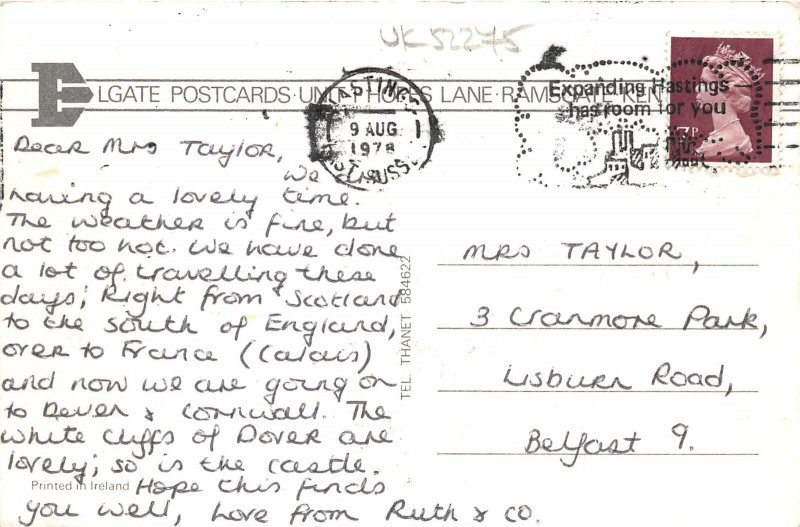 UK 52275
ELGATE POSTCARDS · UN PHOTOS LANE · RAMSGATE KENT
HASTINGS
9 AUG
1978
EAST SUSS
Expanding Hastings
has room for you
7P
Dear Mrs Taylor,
We are
having a lovely time.
The weather is fine, but
not too hot. We have done
a lot of travelling these
days; Right from Scotland
to the south of England,
over to France (Calais)
and now we are going on
to Dever & Cornwall. The
white cliffs of Dover are
lovely; so is the castle.
Hope this finds
you well, Love from Ruth & CO.
Printed in Ireland
TEL. THANET 584622
MRS TAYLOR,
3 Cranmore Park,
Lisburn Road,
Belfast 9.